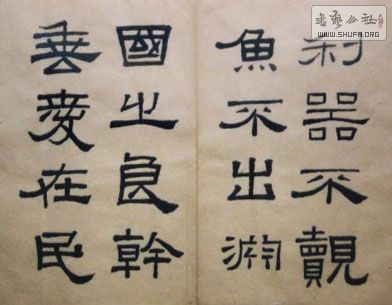 利器不覿
魚不出淵
國之良幹
垂愛在民
書藝公社
WWW.SHUFA.ORG